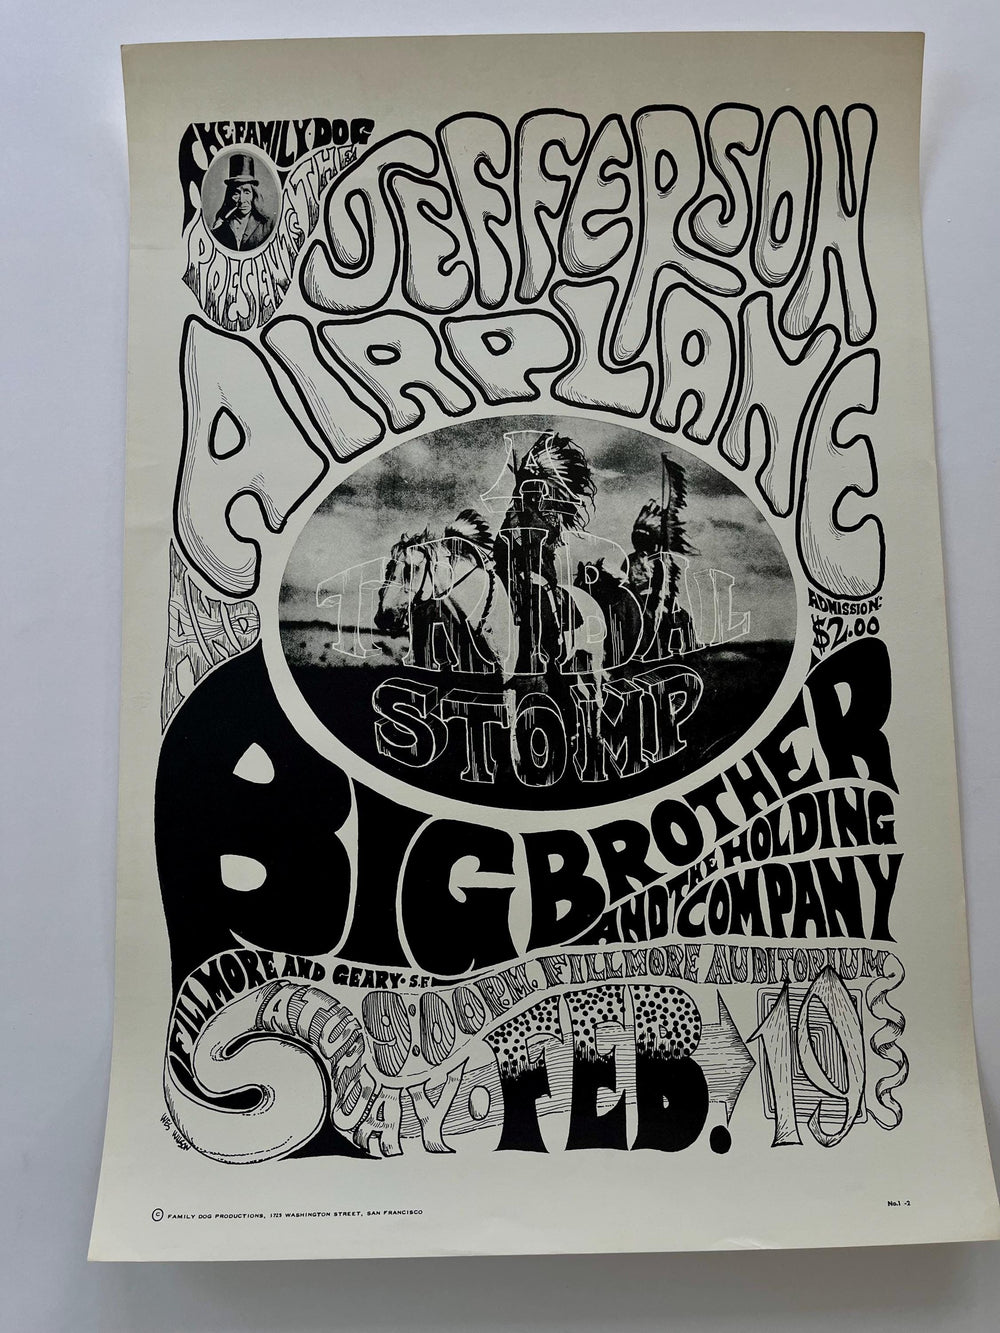 THE FAMILY·DOG
PRESENTS THE
JEFFERSON
AIRPLANE
AND
AS
TRIBAL
STOMP
ADMISSION:
$2.00
BIG BROTHER
AND THE HOLDING
COMPANY
FILLMORE AND GEARY·S.F.
9:00 P.M. FILLMORE AUDITORIUM
SATURDAY·FEB. 19
WES WILSON
© FAMILY DOG PRODUCTIONS, 1725 WASHINGTON STREET, SAN FRANCISCO
No.1 -2